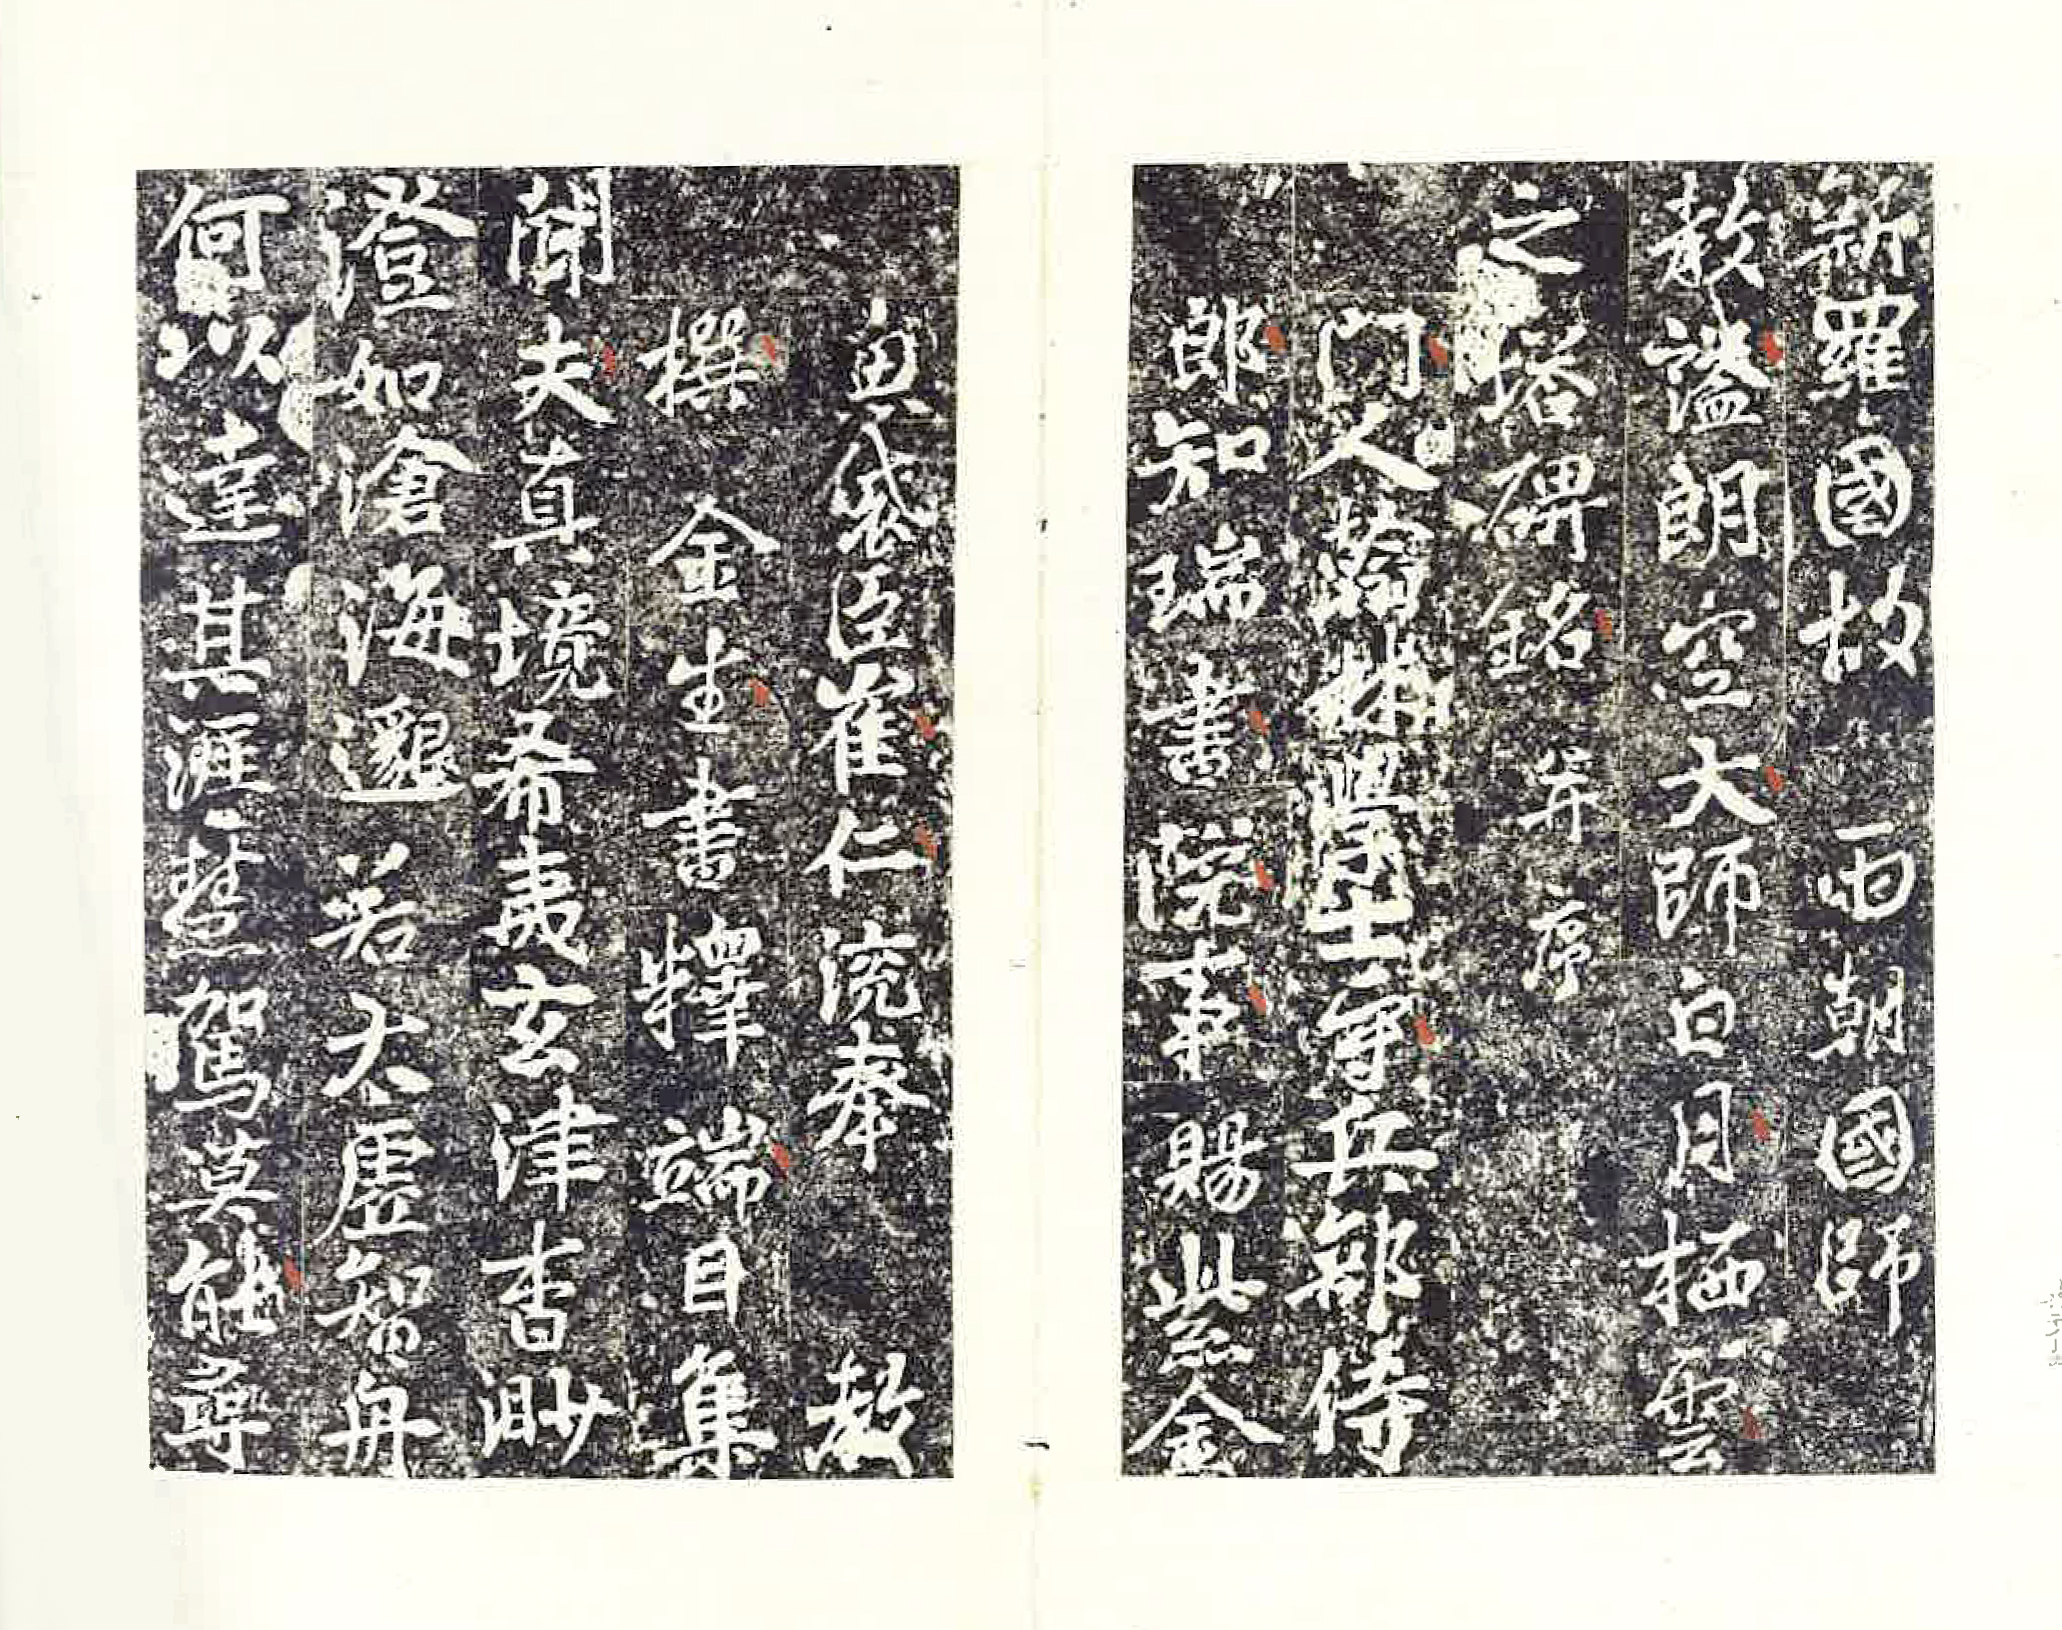 新羅國故　兩朝國師
教謚朗空大師白月栖雲
之塔碑銘　并序
門人翰林學士守兵部侍
郎知瑞書院事賜紫金
魚袋臣崔仁渷奉　教
撰　金生書釋端目集
聞夫真境希夷玄津杳渺
澄如滄海邈若太虛智舟
何以達其涯慧駕莫能尋